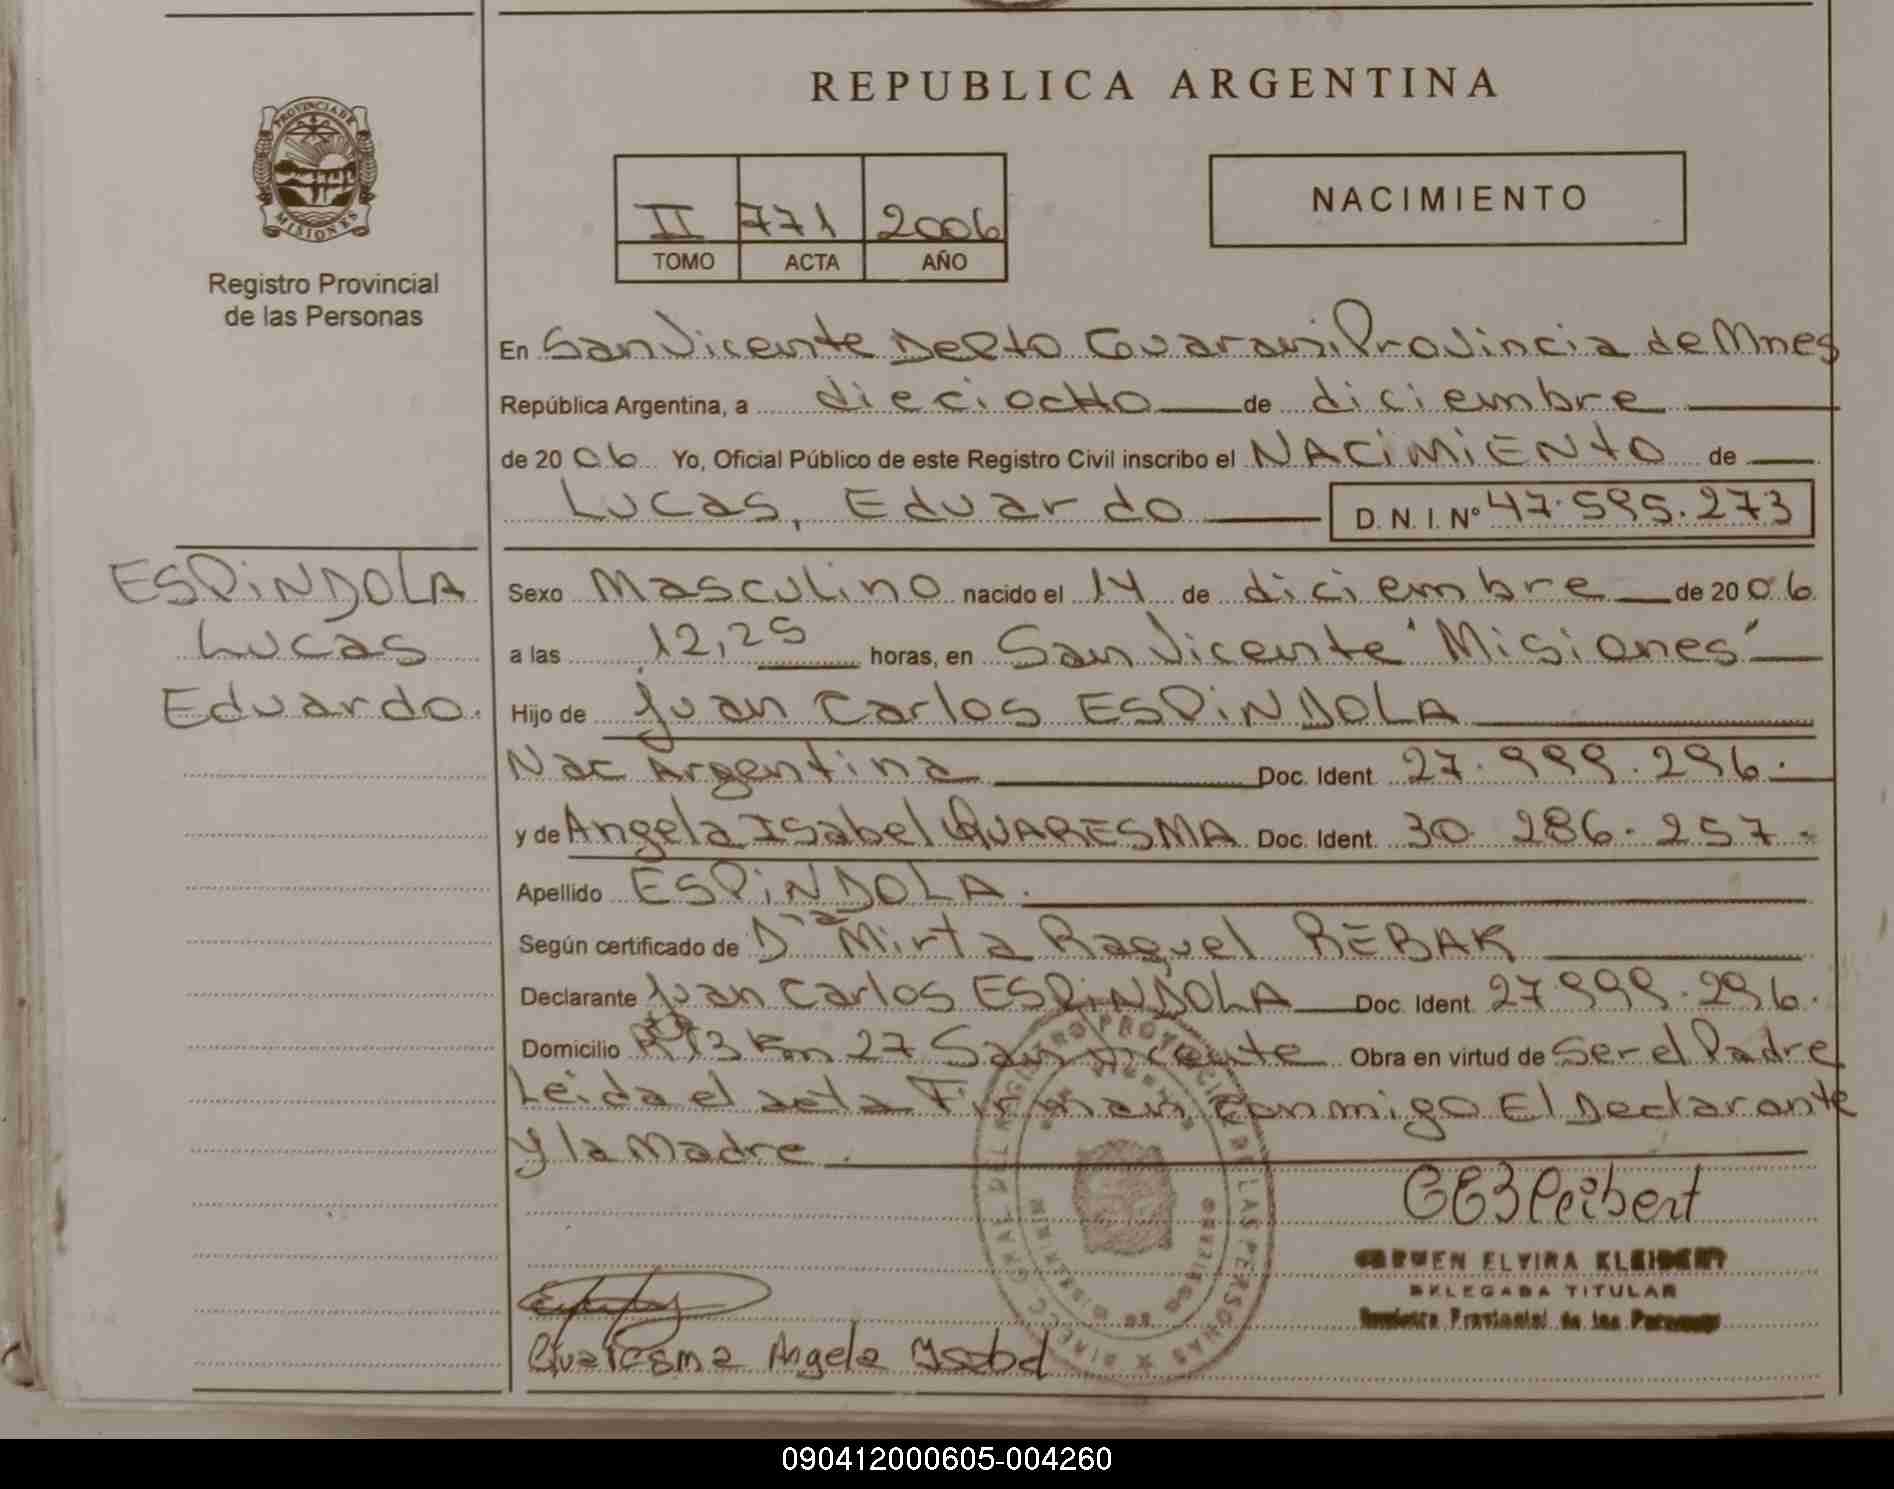 REPUBLICA ARGENTINA
PROVINCIA DE MISIONES
Registro Provincial
de las Personas
II 771 2006
TOMO ACTA AÑO
NACIMIENTO
En San Vicente Depto Guarani Provincia de Mnes
República Argentina, a dieciocHo de diciembre
de 2006 Yo, Oficial Público de este Registro Civil inscribo el NACiMiENtO de
Lucas, Eduardo D. N. I. Nº 47.595.273
ESPiNDOLA
Lucas
Eduardo.
Sexo Masculino nacido el 14 de diciembre de 2006
a las 12,25 horas, en San Vicente "Misiones"
Hijo de Juan Carlos ESPiNDOLA
Nac Argentina Doc. Ident. 27.999.296.
y de Angela Isabel QUARESMA Doc. Ident. 30.286.257.
Apellido ESPiNDOLA.
Según certificado de Dña Mirta Raquel REBAK
Declarante Juan Carlos ESPiNDOLA Doc. Ident. 27.999.296.
Domicilio 13 Km 27 San Vicente Obra en virtud de Ser el Padre
Leida el acta Firman conmigo El Declarante
y la Madre.
CARMEN ELVIRA KLEIBERT
DELEGADA TITULAR
Registro Provincial de las Personas
Quaresma Angela Ysabel
DIREC. GRAL. DEL REGISTRO PROVINCIAL DE LAS PERSONAS
090412000605-004260